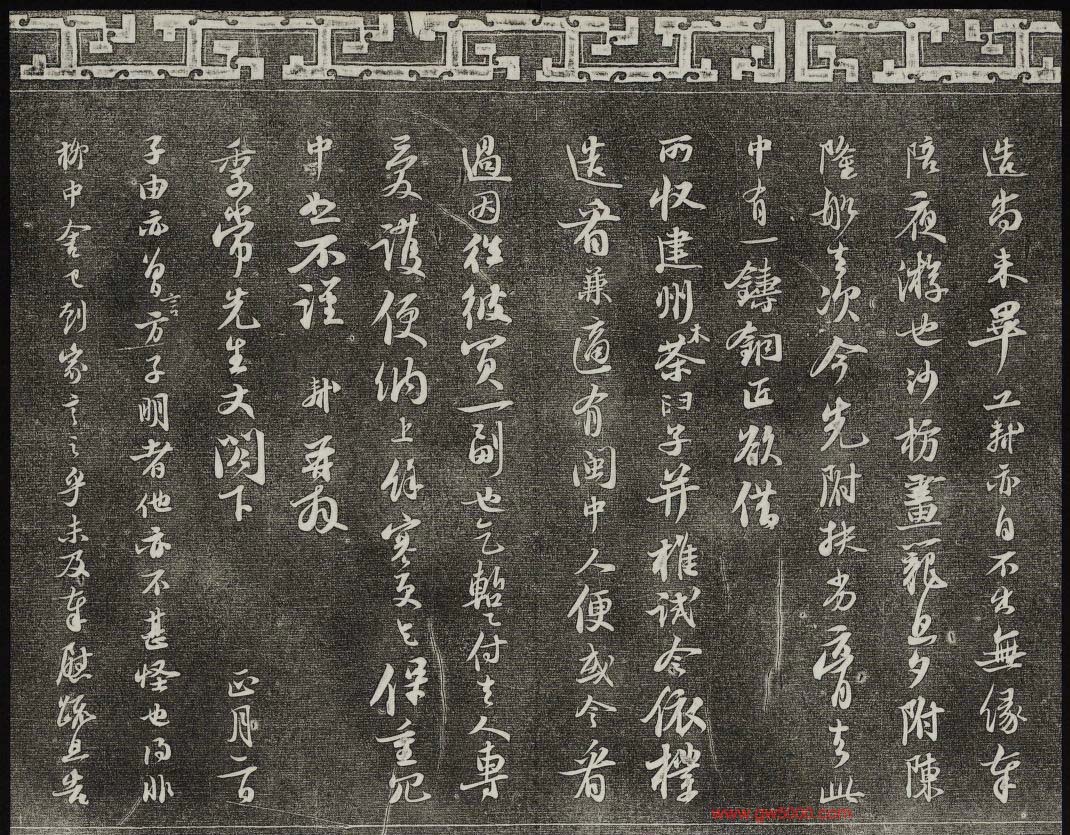 造尚未畢工軾亦自不出無緣奉
陪夜游也沙枋畫籠旦夕附陳
隆船去次今先附扶劣膏去此
中有一鑄銅匠欲借
所收建州木茶臼子并椎試令依樣
造看兼適有閩中人便或令看
過因往彼買一副也乞暫付去人專
愛護便納上餘寒更乞保重冗
中恕不謹軾再拜
季常先生丈閣下 正月二日
子由亦曾言方子明者他亦不甚怪也得非
柳中舍已到家言之乎未及奉慰疏且告
www.gw5000.com